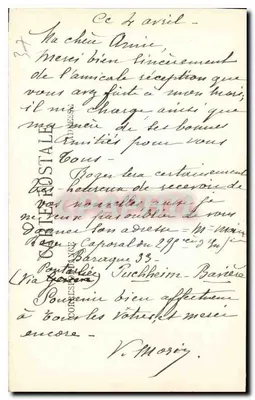 Ce 4 avril -
Ma chère Amie,
Merci bien sincèrement
de l'amicale réception que
vous avez faite à mon mari,
il me charge ainsi que
ma mère de ses bonnes
amitiés pour vous
tous -
Roger sera certainement
très heureux de recevoir de
vos nouvelles aussi je
me permets de vous
donner son adresse = M. Mozin
Roger Caporal au 298e d'Inf
Baraque 33 -
Puchheim - Bavière
(via Pontarlier
Souvenir bien affectueux
à tous les vôtres et merci
encore -
V. Mozin
CARTE POSTALE
37